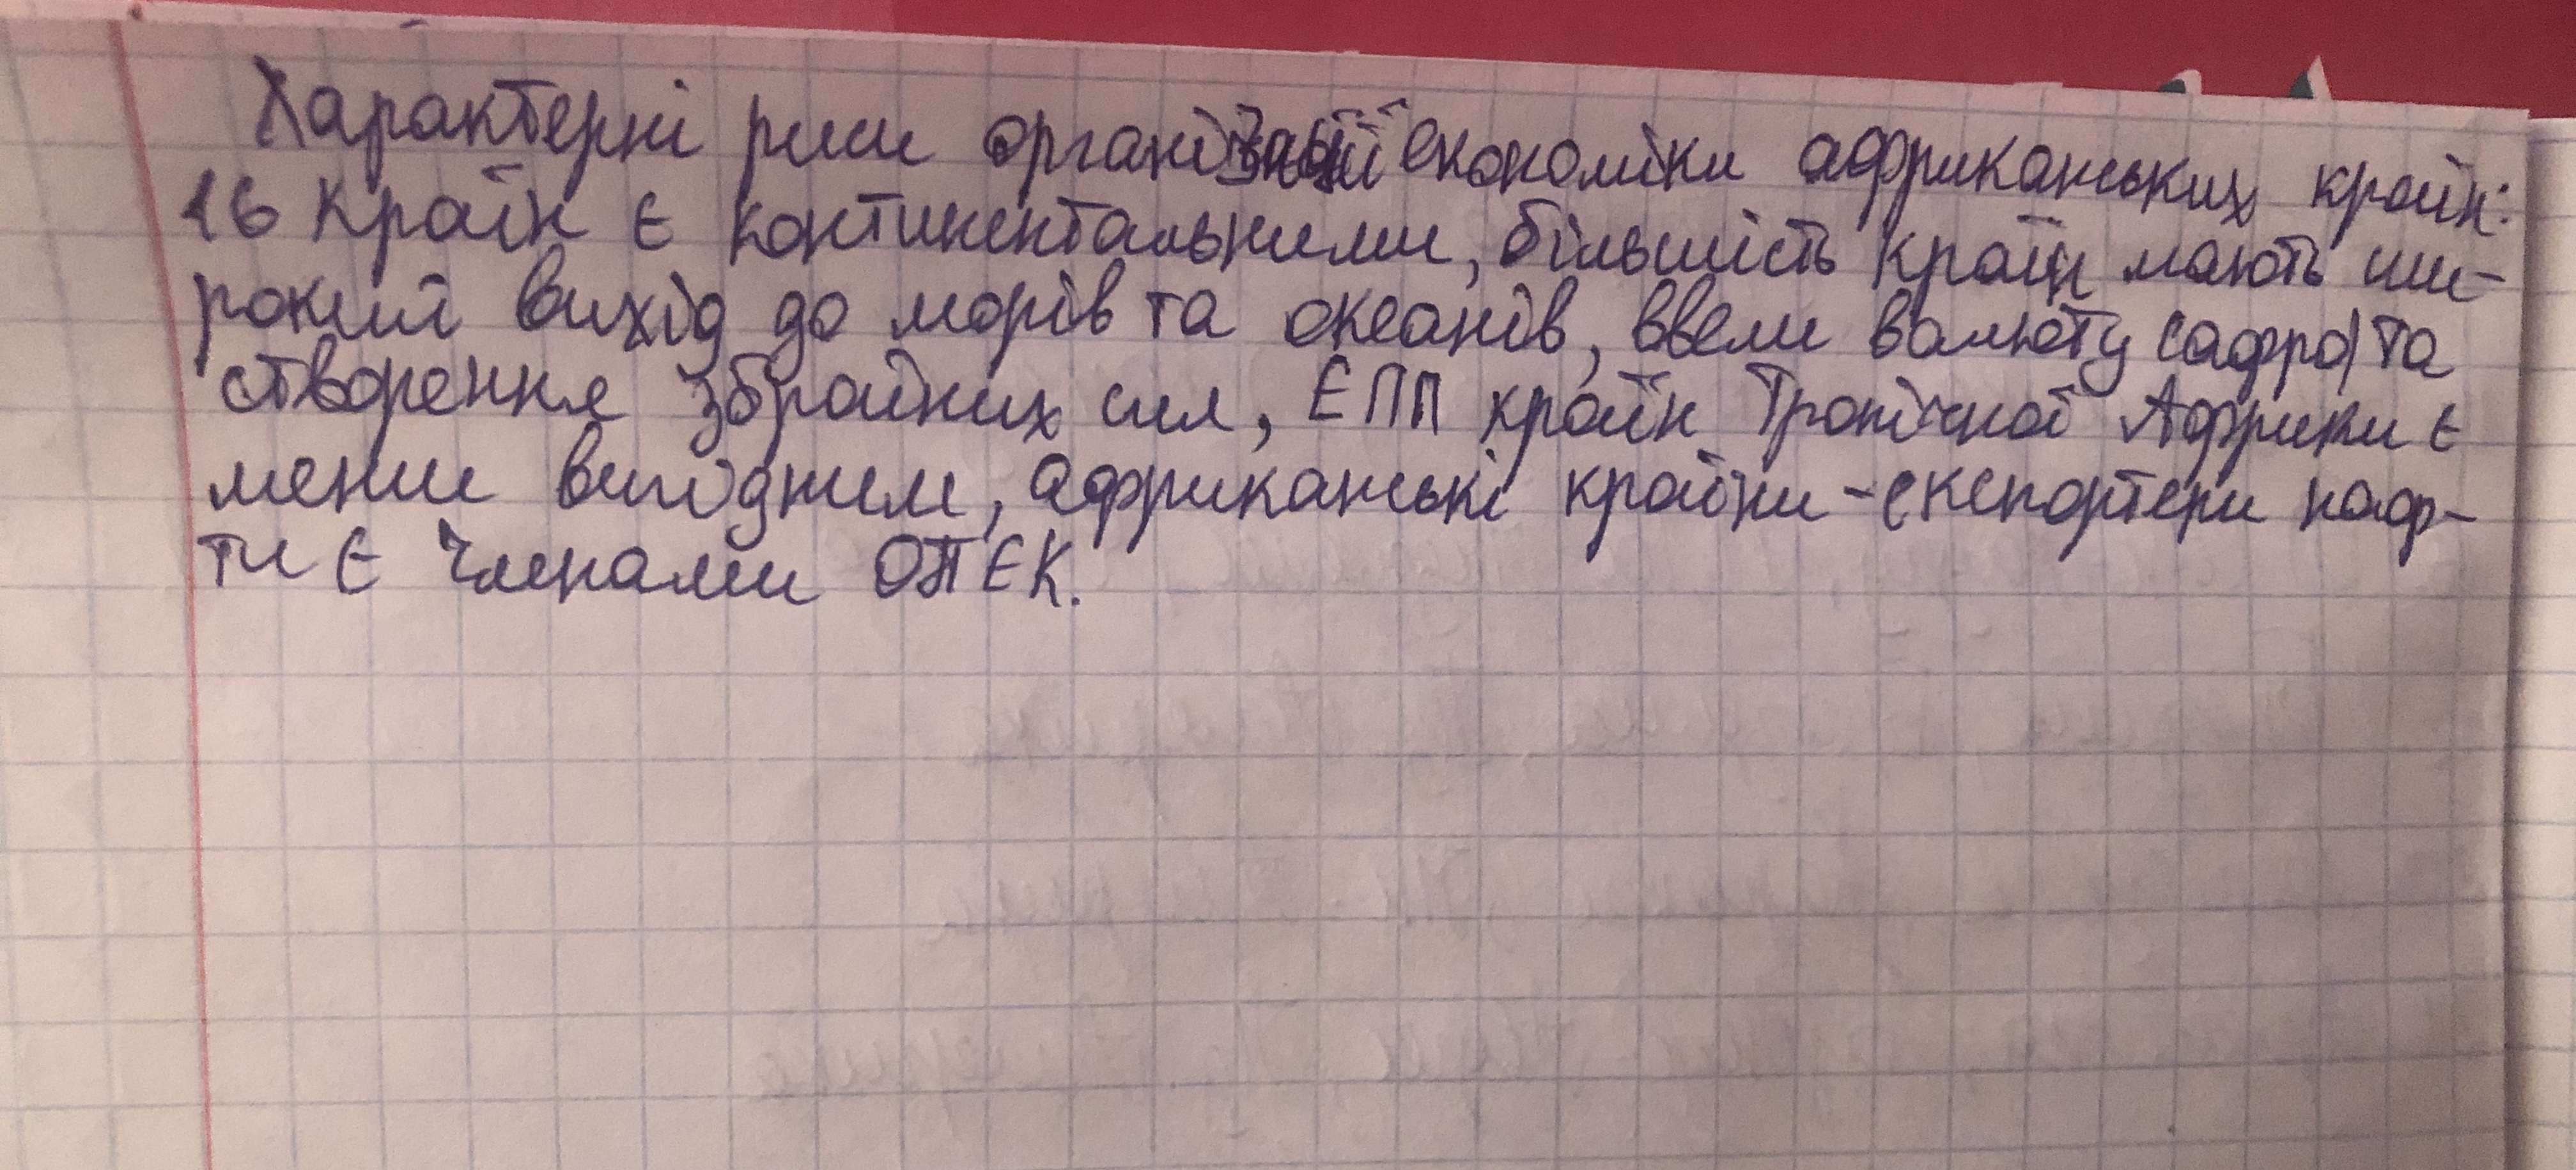 Характерні риси організації економіки африканських країн:
16 країн є континентальними, більшість країн мають ши-
рокий вихід до морів та океанів, ввели валюту (афро) та
створення збройних сил, ЕПП країн Тропічної Африки є
менш вигідним, африканські країни-експортери наф-
ти є членами ОПЕК.